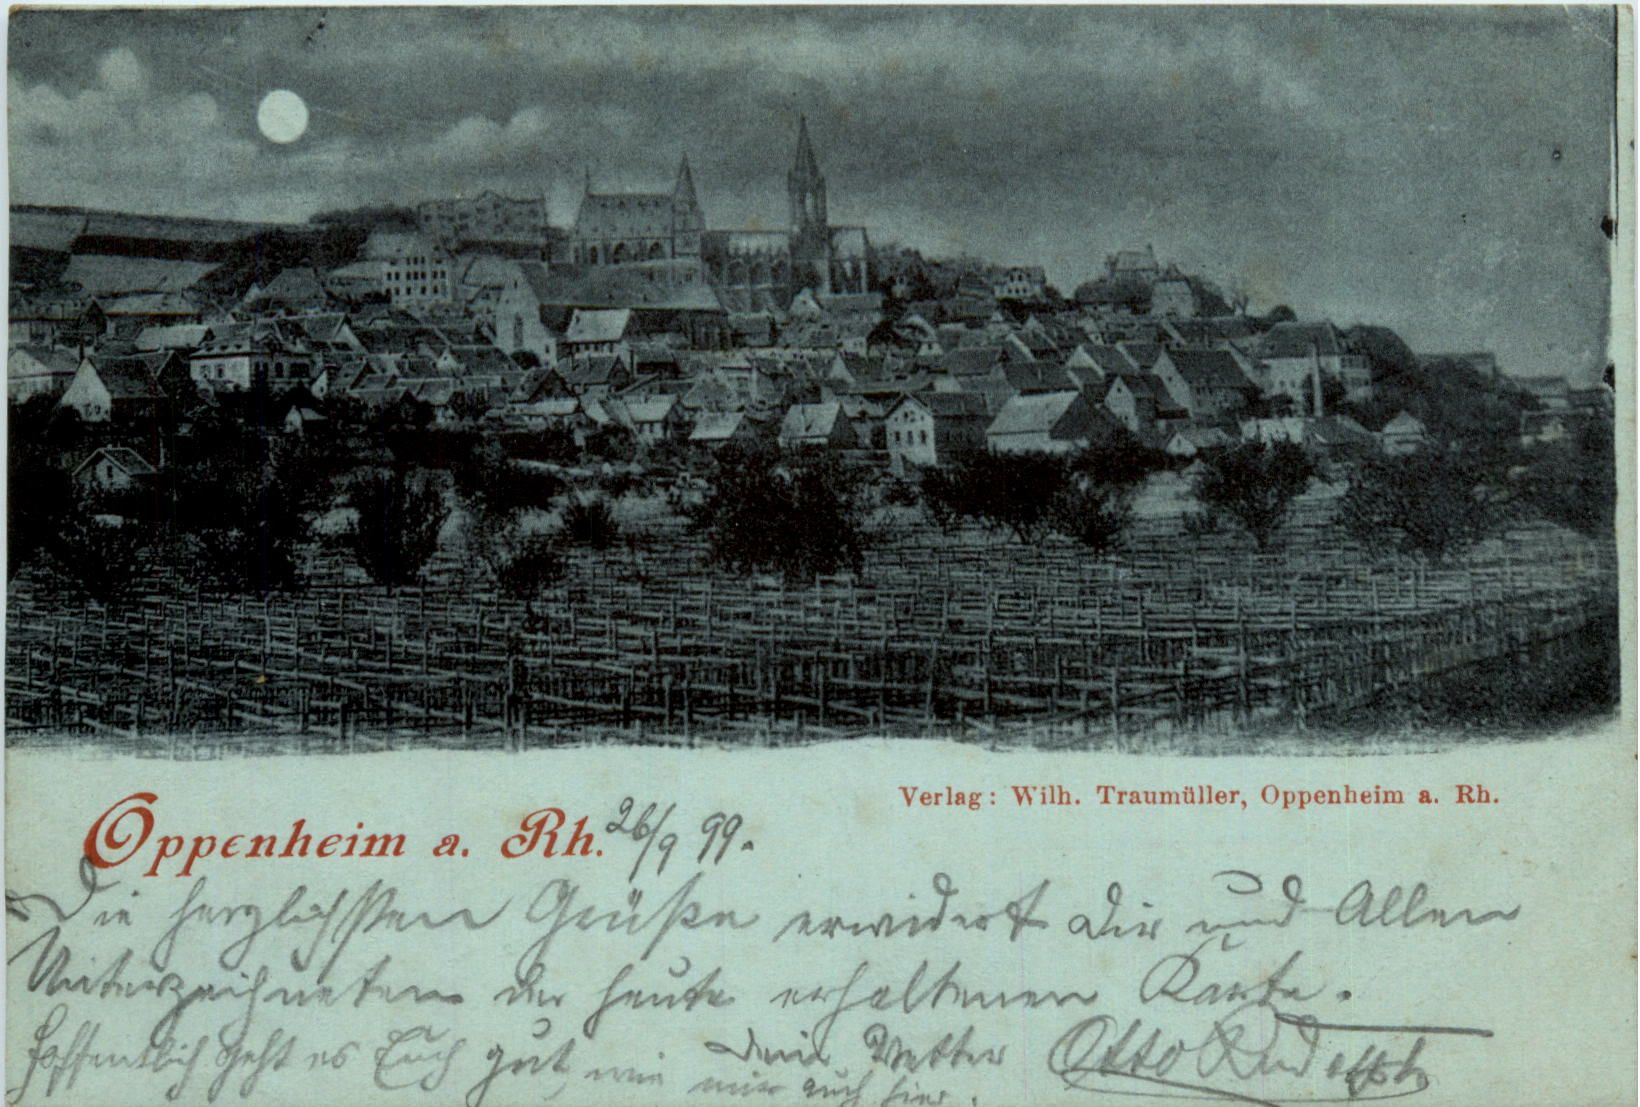 Verlag: Wilh. Traumüller, Oppenheim a. Rh.
Oppenheim a. Rh. 26/9 99.
Die herzlichsten Grüße erwidert Dir und Allen
Unterzeichneten der heute erhaltenen Karte.
Dein Vetter Otto Rudolph
Hoffentlich geht es Euch gut, wie mir auch hier.